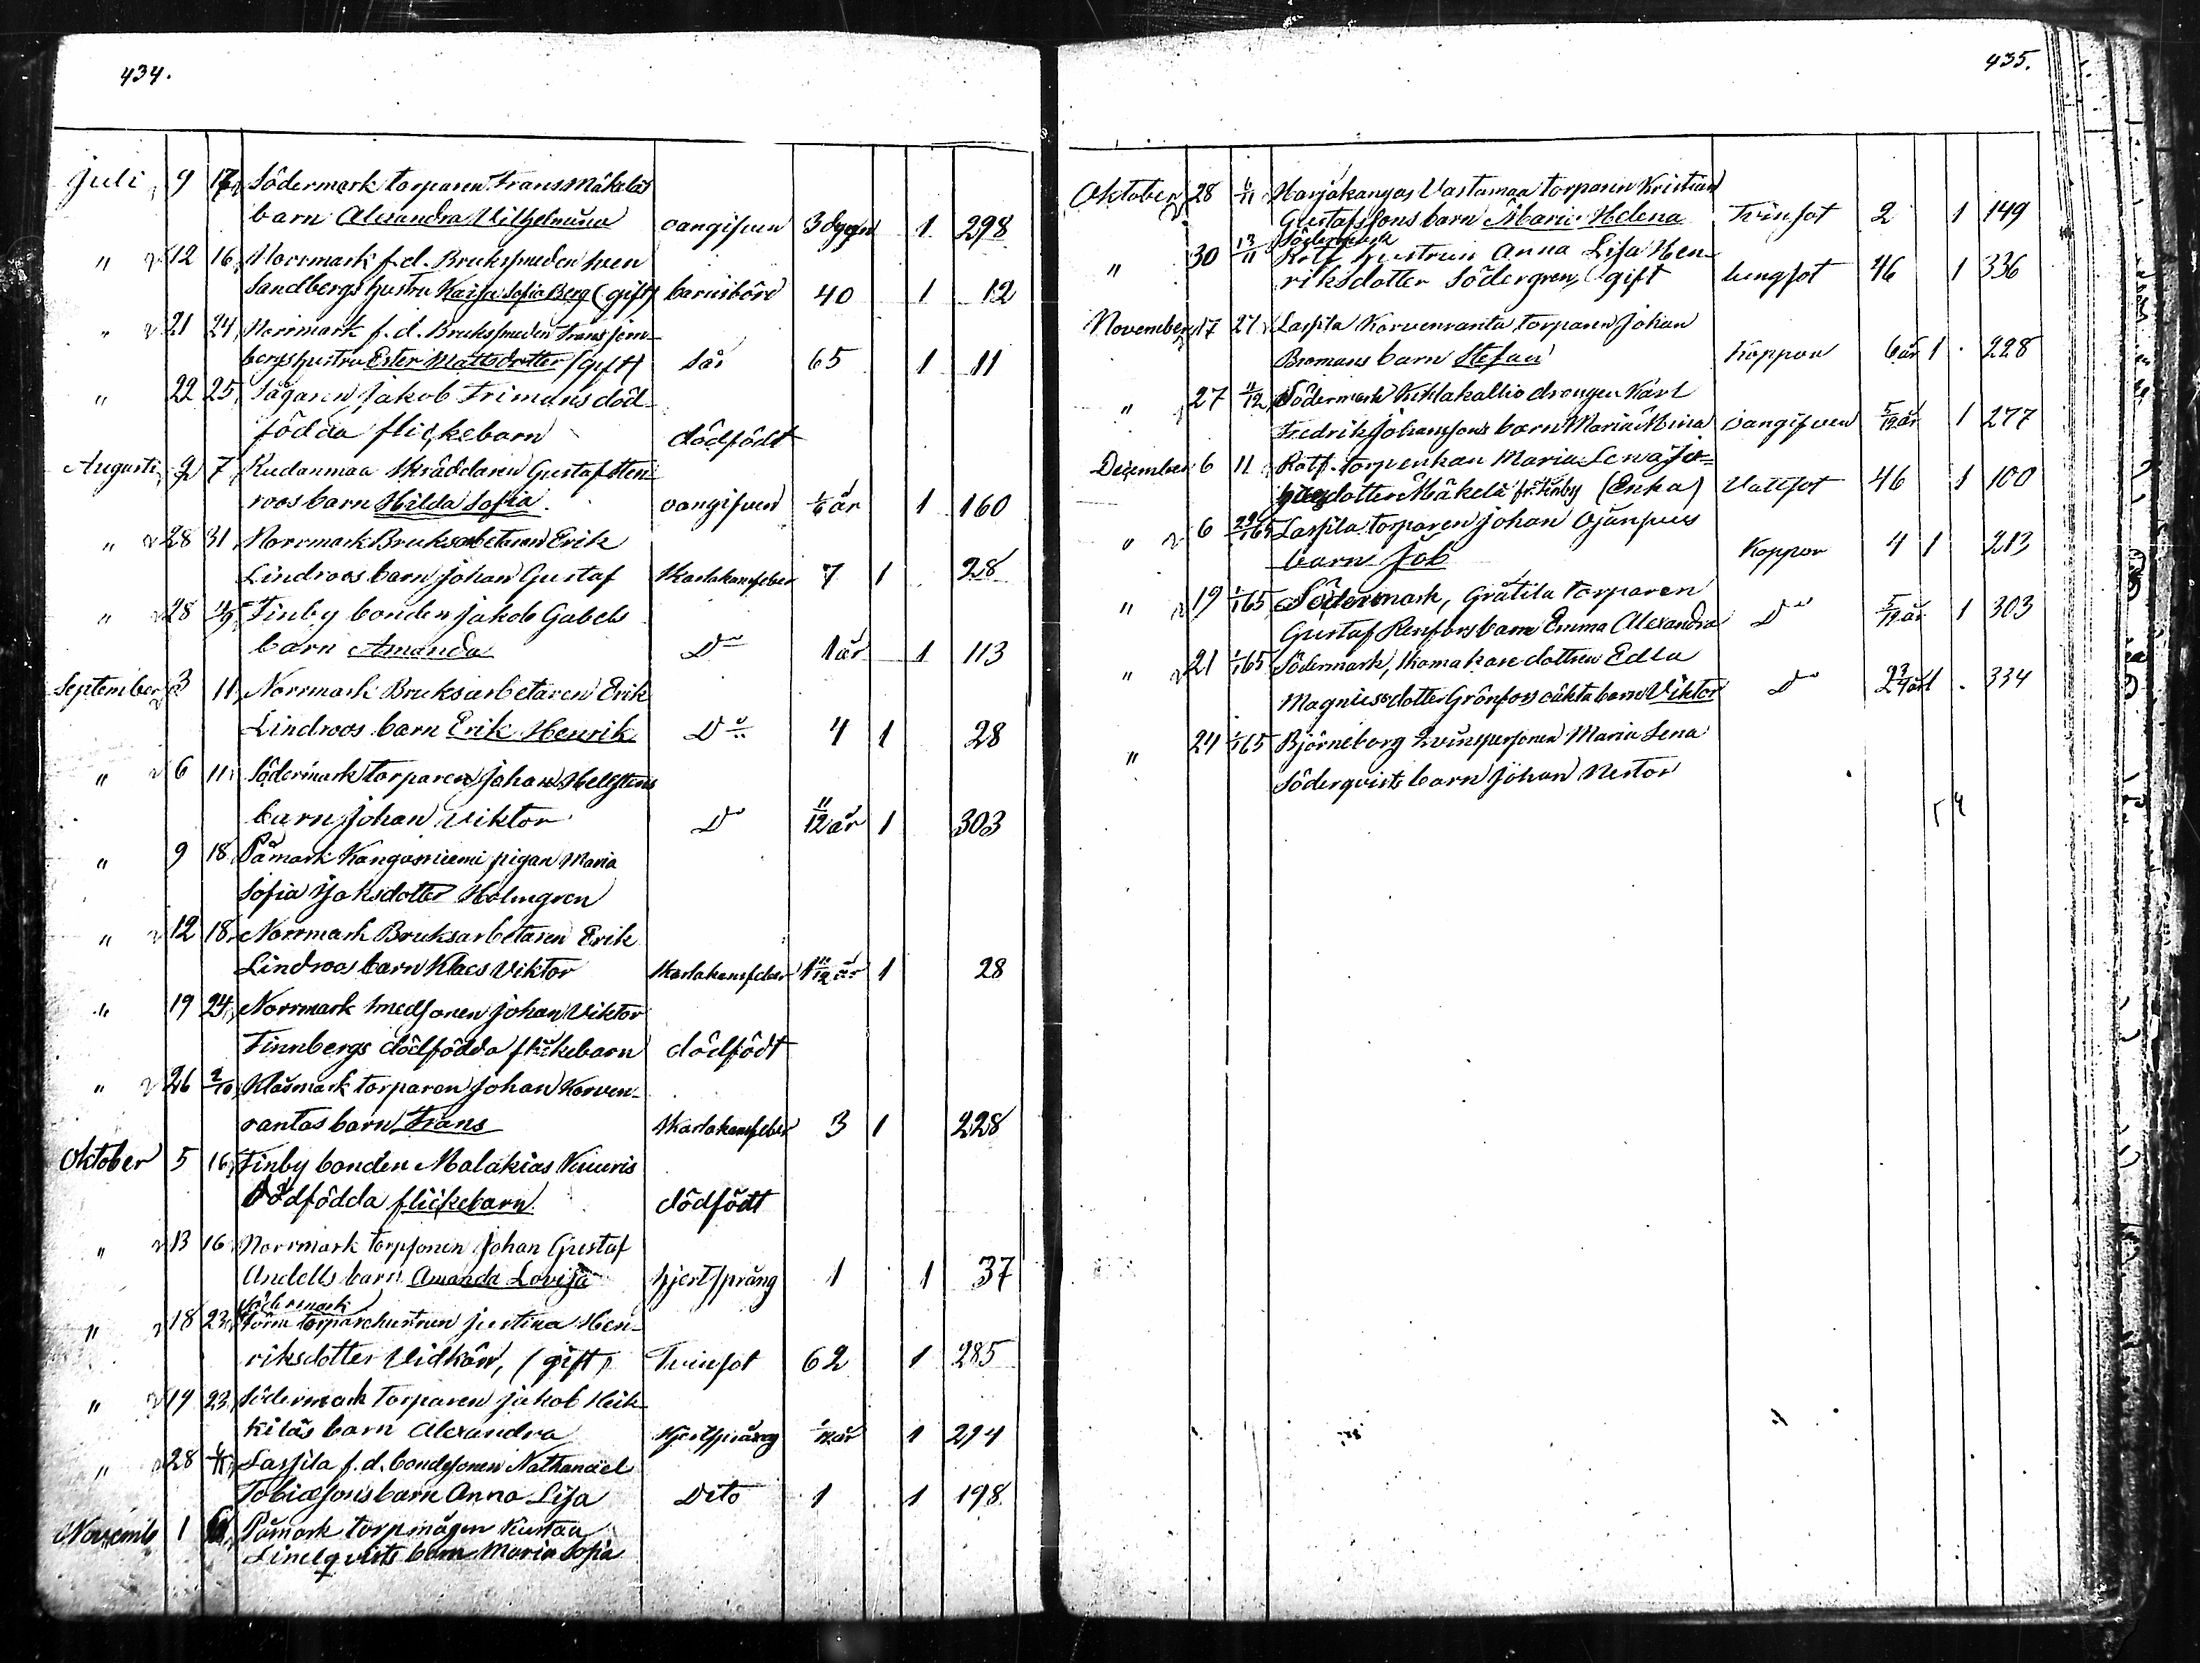 434.
Juli 9 17 Södermark torparen Frans Mäkeläs
barn Alexandra Vilhelmina oangifven 3 dygn 1 298
" 12 16 Norrmark f.d. Bruksmeden Sven
Sandbergs hustru Kaisa Sofia Berg (gift) barnsbörd 40 1 12
" 21 24 Norrmark f.d. Bruksmeden Frans
bergs hustru Ester Mattsdotter (gift) Sår 65 1 11
" 22 25 Sågaren Jakob Frimans död-
födda flickebarn dödfödt
Augusti 2 7 Kudanmaa Skräddaren Gustaf Sten-
roos barn Hilda Sofia oangifven 1/6 år 1 160
" 28 31 Norrmark Bruksarbetaren Erik
Lindroos barn Johan Gustaf Skarlakansfeber 7 1 28
" 28 11/9 Finby bonden Jakob Gabels
barn Amanda Do 1 år 1 113
September 3 11 Norrmark Bruksarbetaren Erik
Lindroos barn Erik Henrik Do 4 1 28
" 6 11 Södermark torparen Johan Hellstens
barn Johan Viktor Do 11/12 år 1 303
" 9 18 Påmark Kangasniemi pigan Maria
Sofia Isaksdotter Holmgren
" 12 18 Norrmark Bruksarbetaren Erik
Lindroos barn Klaes Viktor Skarlakansfeber 1 10/12 år 1 28
" 19 24 Norrmark Smedsonen Johan Viktor
Finnbergs dödfödda flickebarn dödfödt
" 26 2/10 Klåsmark torparen Johan Korven-
rantas barn Frans Skarlakansfeber 3 1 228
Oktober 5 16 Finby bonden Malakias Knuuris
dödfödda flickebarn dödfödt
" 13 16 Norrmark torpsonen Johan Gustaf
Andells barn Amanda Lovisa hjertsprång 1 1 37
Södermark
" 18 23 torparehustrun Justina Hen-
riksdotter Vidkån, (gift) Tvinsot 62 1 285
" 19 23 Södermark torparen Jakob Heik-
kiläs barn Alexandra Hjertsprång 1/12 år 1 294
" 28 6/11 Lassila f.d. bondesonen Nathanael
Tobiæsons barn Anna Lisa Dito 1 1 198
Novemb 1 Påmark torpmågen Kustaa
Lindqvists barn Maria Sofia
435.
Oktober 28 6/11 Harjakangas Vastamaa torparen Kristian
Gustafssons barn Maria Helena Tvinsot 2 1 149
Södermark
" 30 13/11 Rotf hustrun Anna Lisa Hen-
riksdotter Södergren, gift lungsot 46 1 336
November 17 27 Lassila Korvenranta torparen Johan
Bromans barn Stefan Koppor 6 år 1 228
" 27 11/12 Södermark Kihlakallio drängen Karl
Fredrik Johanssons barn Maria Mina oangifven 5/12 år 1 277
December 6 11 Rotf. torpenkan Maria Lena
dotter Mäkelä fr. Finby (Enka) Vattsot 46 1 100
" 6 29/1 65 Lassila torparen Johan Ojanpuus
barn Job Koppor 4 1 213
" 19 1/1 65 Södermark, Gråtila torparen
Gustaf Renfors barn Emma Alexandra Do 5/12 år 1 303
" 21 1/1 65 Södermark, Komakare dottren Edla
Magnusdotter Grönfors oäkta barn Viktor Do 2 3/4 år 1 334
" 24 1/1 65 Björneborg qvinspersonen Maria Lena
Söderqvists barn Johan Nestor